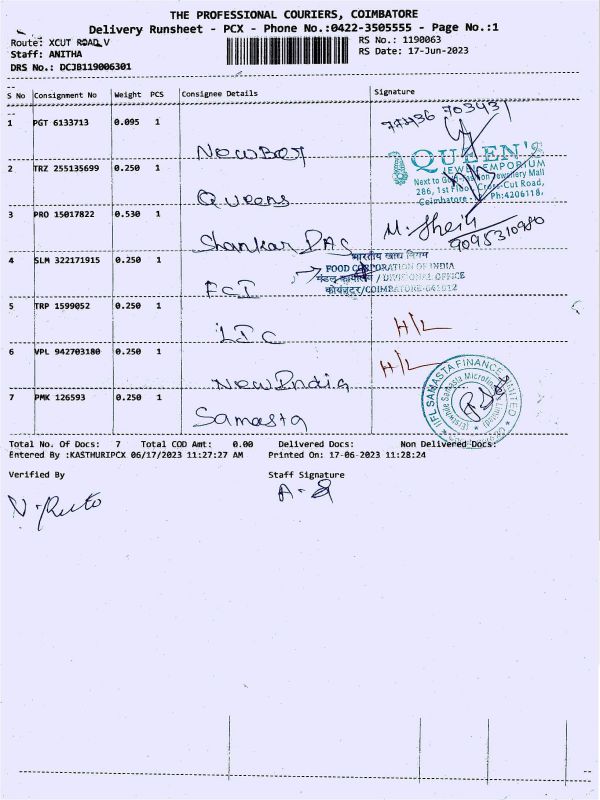 THE PROFESSIONAL COURIERS, COIMBATORE
Delivery Runsheet - PCX - Phone No.:0422-3505555 - Page No.:1
Route: XCUT ROAD V
RS No.: 1190063
Staff: ANITHA
RS Date: 17-Jun-2023
DRS No.: DCJB119006301
S No Consignment No Weight PCS Consignee Details Signature
1 PGT 6133713 0.095 1
703431
NewBoy
QUEEN'S
JEWEL EMPORIUM
Jewellery Mall
286, 1st Floor, Cross-Cut Road,
Coimbatore Ph:4206118.
2 TRZ 255135699 0.250 1
Queens
3 PRO 15017822 0.530 1
Shankar IAS
M. 9095310980
4 SLM 322171915 0.250 1
भारतीय खाद्य निगम
FOOD CORPORATION OF INDIA
/ DIVISIONAL OFFICE
/COIMBATORE-641012
FCI
5 TRP 1599052 0.250 1
LIC
H/L
6 VPL 942703180 0.250 1
New India
H/L
7 PMK 126593 0.250 1
Samasta
IIFL SAMASTA FINANCE LIMITED
Total No. Of Docs: 7 Total COD Amt: 0.00 Delivered Docs: Non Delivered Docs:
Entered By :KASTHURIPCX 06/17/2023 11:27:27 AM Printed On: 17-06-2023 11:28:24
Verified By Staff Signature